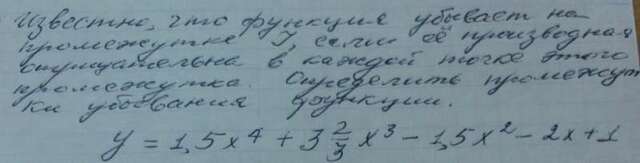 Известно, что функция убывает на
промежутке I, если её производная
отрицательна в каждой точке этого
промежутка. Определить промежут
ки убывания функции.
y = 1,5x⁴ + 3 2/3 x³ - 1,5x² - 2x + 1